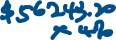 $56243.20
x 4%